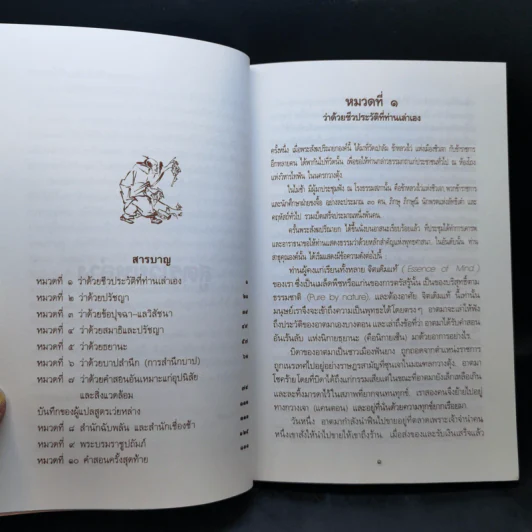 สารบาญ
หมวดที่ ๑ ว่าด้วยชีวประวัติที่ท่านเล่าเอง ๑
หมวดที่ ๒ ว่าด้วยปรัชญา
หมวดที่ ๓ ว่าด้วยข้อปุจฉา-แลวิสัชนา
หมวดที่ ๔ ว่าด้วยสมาธิและปรัชญา
หมวดที่ ๕ ว่าด้วยธยานะ
หมวดที่ ๖ ว่าด้วยบาปสำนึก (การสำนึกบาป)
หมวดที่ ๗ ว่าด้วยคำสอนอันเหมาะแก่อุปนิสัย
และสิ่งแวดล้อม
บันทึกของผู้แปลสูตรเว่ยหล่าง
หมวดที่ ๘ สำนักฉับพลัน และสำนักเชื่องช้า
หมวดที่ ๙ พระบรมราชูปถัมภ์
หมวดที่ ๑๐ คำสอนครั้งสุดท้าย
หมวดที่ ๑
ว่าด้วยชีวประวัติที่ท่านเล่าเอง
ครั้งหนึ่ง เมื่อพระสังฆปริณายกองค์นี้ ได้มาที่วัดเปาลัม
อีกหลายคน ได้พากันไปที่วัดนั้น เพื่อขอให้ท่านกล่าวธรรมกถาแก่ประชาชนทั่วไป ณ ห้องโถง
แห่งวิหารไทฟัน ในนครกวางตุ้ง
ในไม่ช้า มีผู้มาประชุมฟัง ณ โรงธรรมสภานั้น
และนักศึกษาฝ่ายขงจื้อ อย่างละประมาณ ๓๐ คน ภิกษุ ภิกษุณี นักพรตแห่งลัทธิเต๋า และ
คฤหัสถ์ทั่วไป รวมเบ็ดเสร็จประมาณหนึ่งพันคน
ครั้นพระสังฆปริณายก ได้ขึ้นนั่งบนธรรมาสน์เรียบร้อยแล้ว ที่ประชุมได้ทำการเคารพ
และอาราธนาขอให้ท่านแสดงธรรมว่าด้วยหลักสำคัญแห่งพุทธศาสนา ในอันดับนั้น ท่าน
สาธุคุณองค์นั้น ได้เริ่มแสดงมีข้อความดังต่อไปนี้
ท่านผู้คงแก่เรียนทั้งหลาย จิตเดิมแท้ ( Essence of Mind )
ของเรา ซึ่งเป็นเมล็ดพืชหรือแก่นของการตรัสรู้นั้น เป็นของบริสุทธิ์ตาม
ธรรมชาติ (Pure by nature), และต้องอาศัย จิตเดิมแท้ นี้เท่านั้น
มนุษย์เราจึงจะเข้าถึงความเป็นพุทธะได้โดยตรง ๆ อาตมาจะแก่ให้ฟัง
ถึงประวัติของอาตมาเองบางตอน และเล่าถึงข้อที่ว่า อาตมาได้รับคำสอน
อันเร้นลับ แห่งนิกายธยานะ (คือนิกายเซ็น) มาด้วยอาการอย่างไร
บิดาของอาตมาเป็นชาวเมืองฟันยาง ถูกถอดจากตำแหน่งราชการ
ถูกเนรเทศไปอยู่อย่างราษฎรสามัญที่ซุนเจาในมณฑลกวางตุ้ง อาตมา
โชคร้าย โดยที่บิดาได้ถึงแก่กรรมเสียแต่ในขณะที่อาตมายังเล็กเหลือเกิน
และละทิ้งมารดาไว้ในสภาพที่ยากจนทนทุกข์ เราสองคนจึงย้ายไปอยู่
ทางกวางเจา (แคนตอน) และอยู่ที่นั่นด้วยความทุกข์ยากเรื่อยมา
วันหนึ่ง อาตมากำลังนำฟืนไปขายอยู่ที่ตลาดเพราะเจ้าจำนำคน
หนึ่งเขาสั่งให้นำไปขายให้เขาถึงร้าน เมื่อส่งของและรับเงินเสร็จแล้ว
๑